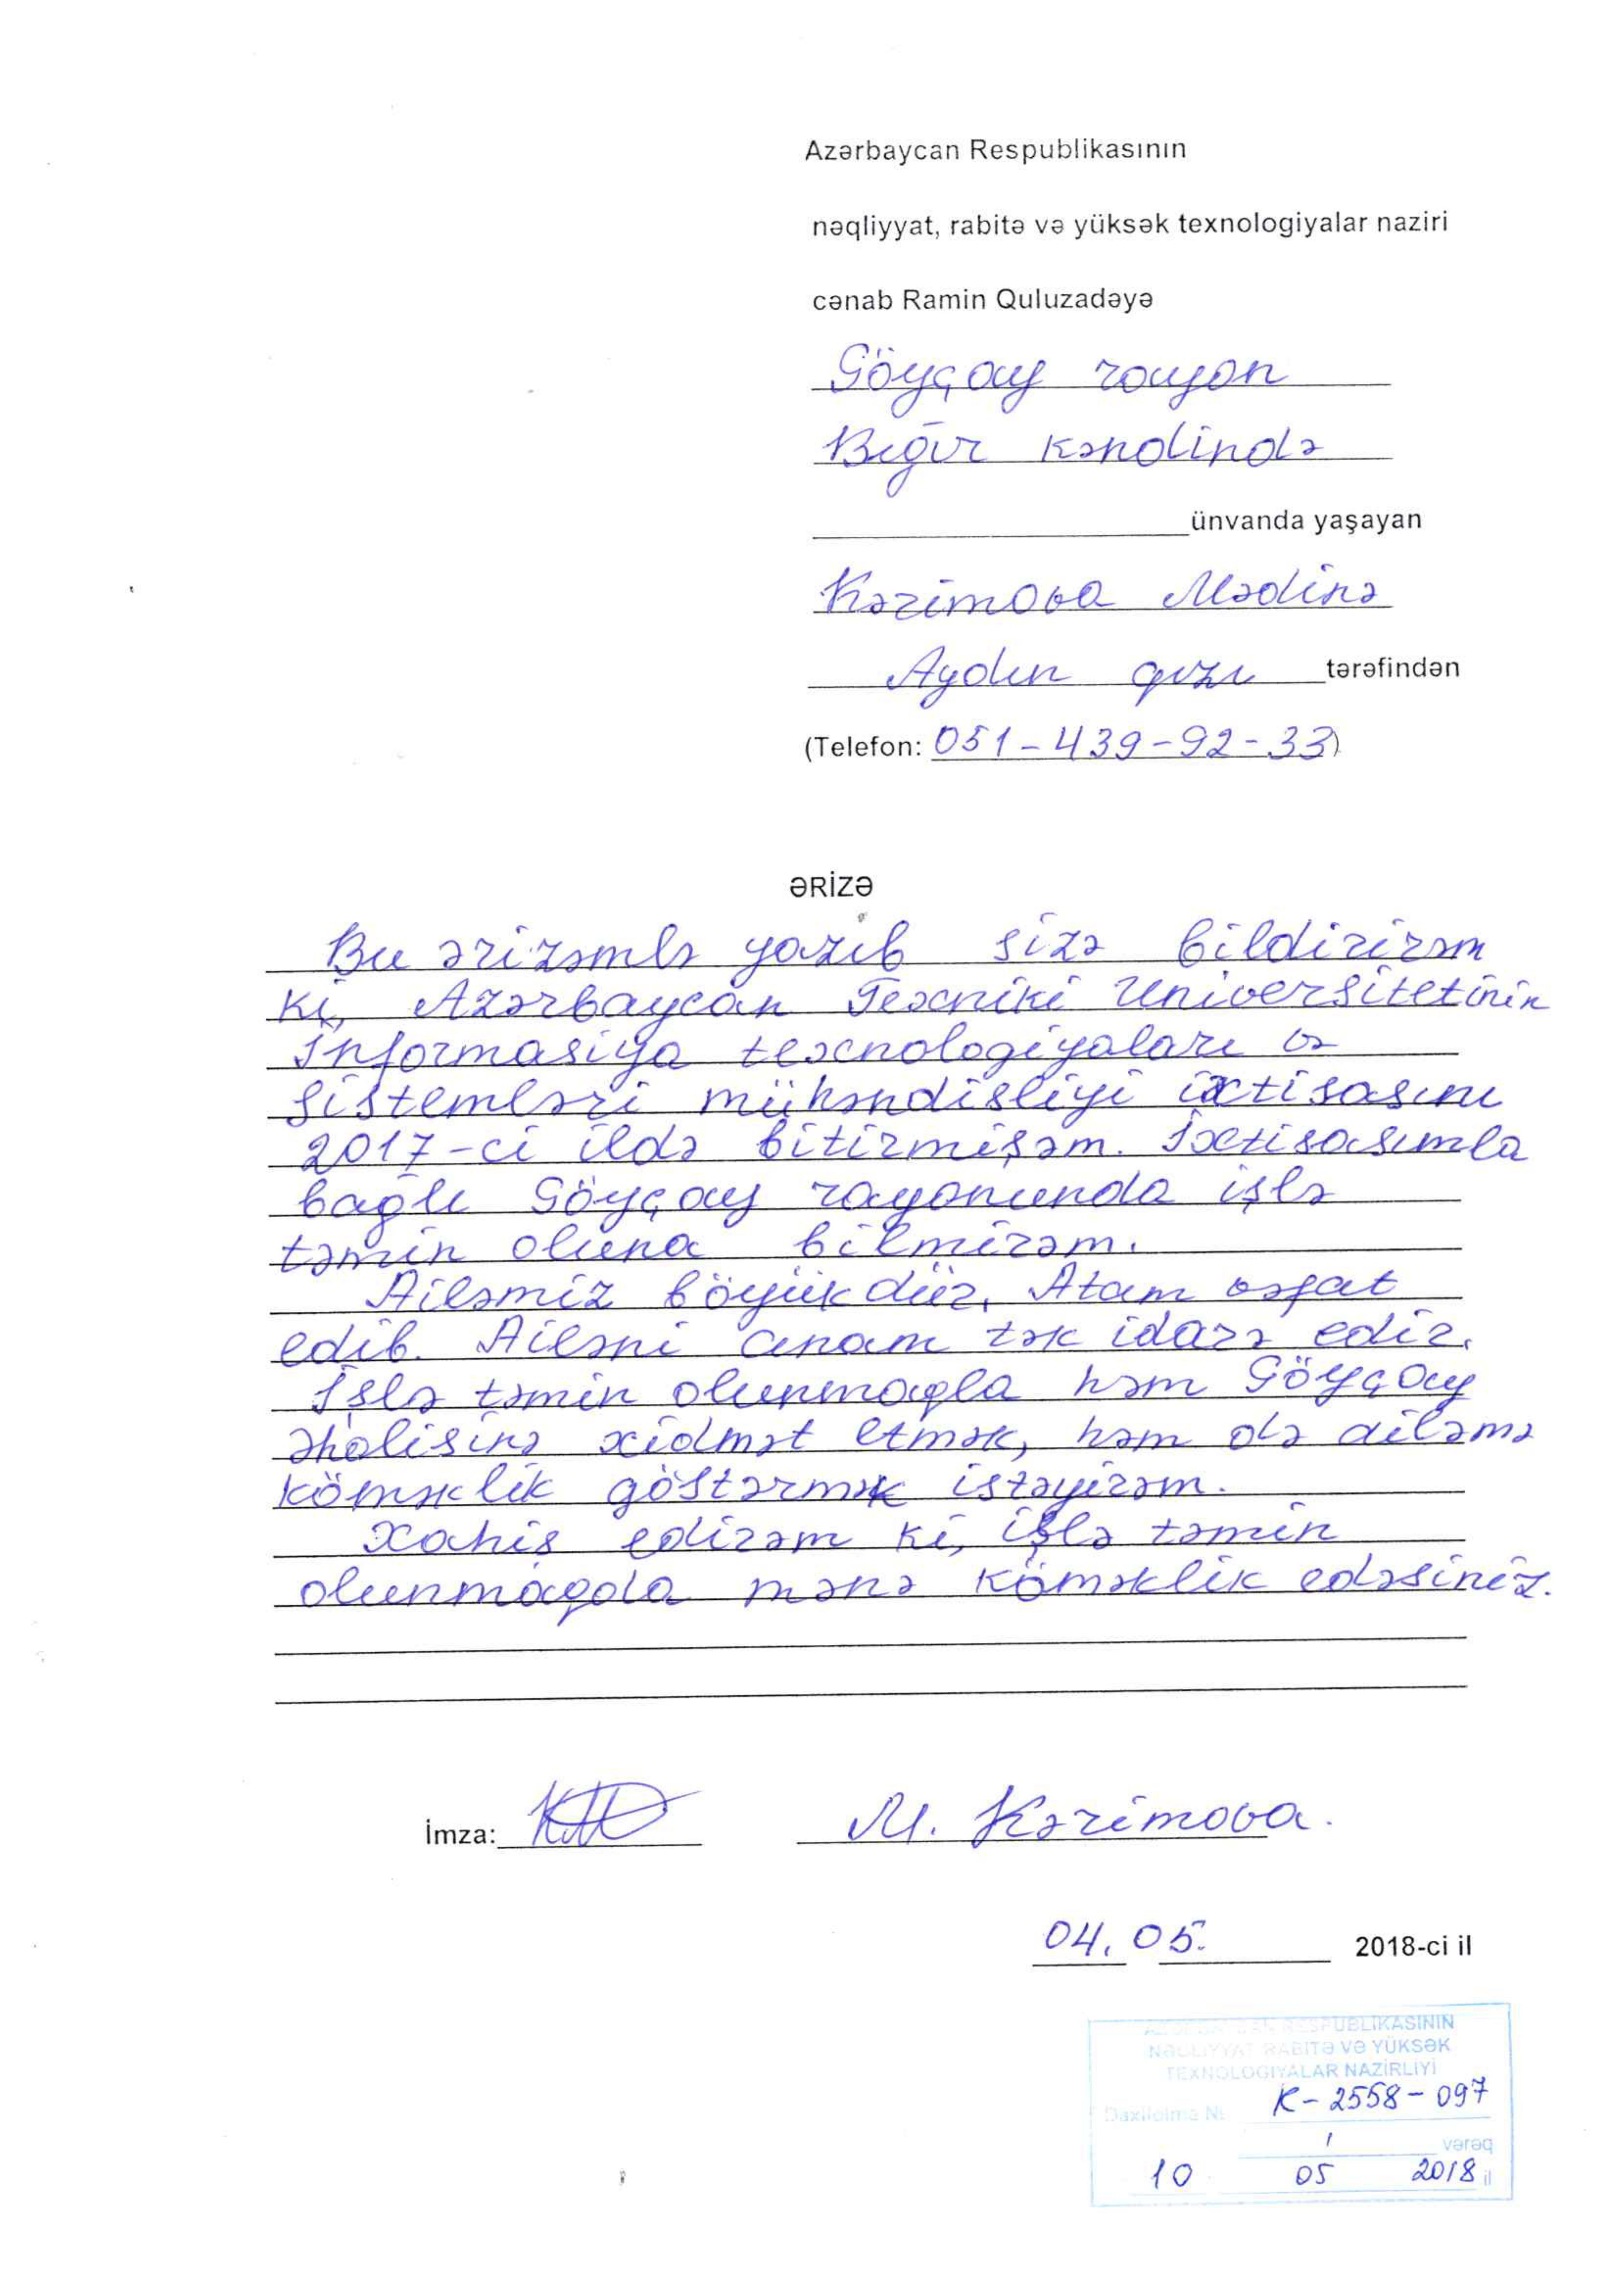 Azərbaycan Respublikasının
nəqliyyat, rabitə və yüksək texnologiyalar naziri
cənab Ramin Quluzadəyə
Göyçay rayon
Bığır kəndində
ünvanda yaşayan
Kərimova Mədinə
Aydın qızı tərəfindən
(Telefon: 051-439-92-33)
ƏRİZƏ
Bu ərizəmlə yazıb sizə bildirirəm
ki, Azərbaycan Texniki Universitetinin
İnformasiya texnologiyaları və
sistemləri mühəndisliyi ixtisasını
2017-ci ildə bitirmişəm. İxtisasımla
bağlı Göyçay rayonunda işlə
təmin oluna bilmirəm.
Ailəmiz böyükdür. Atam vəfat
edib. Ailəni anam tək idarə edir.
İşlə təmin olunmaqla həm Göyçay
əhalisinə xidmət etmək, həm də ailəmə
köməklik göstərmək istəyirəm.
Xahiş edirəm ki, işlə təmin
olunmaqda mənə köməklik edəsiniz.
İmza: M. Kərimova.
04.05. 2018-ci il
AZƏRBAYCAN RESPUBLİKASININ
NƏQLİYYAT RABİTƏ VƏ YÜKSƏK
TEXNOLOGİYALAR NAZİRLİYİ
Daxilolma № K-2558-097
1 vərəq
10 05 2018 il